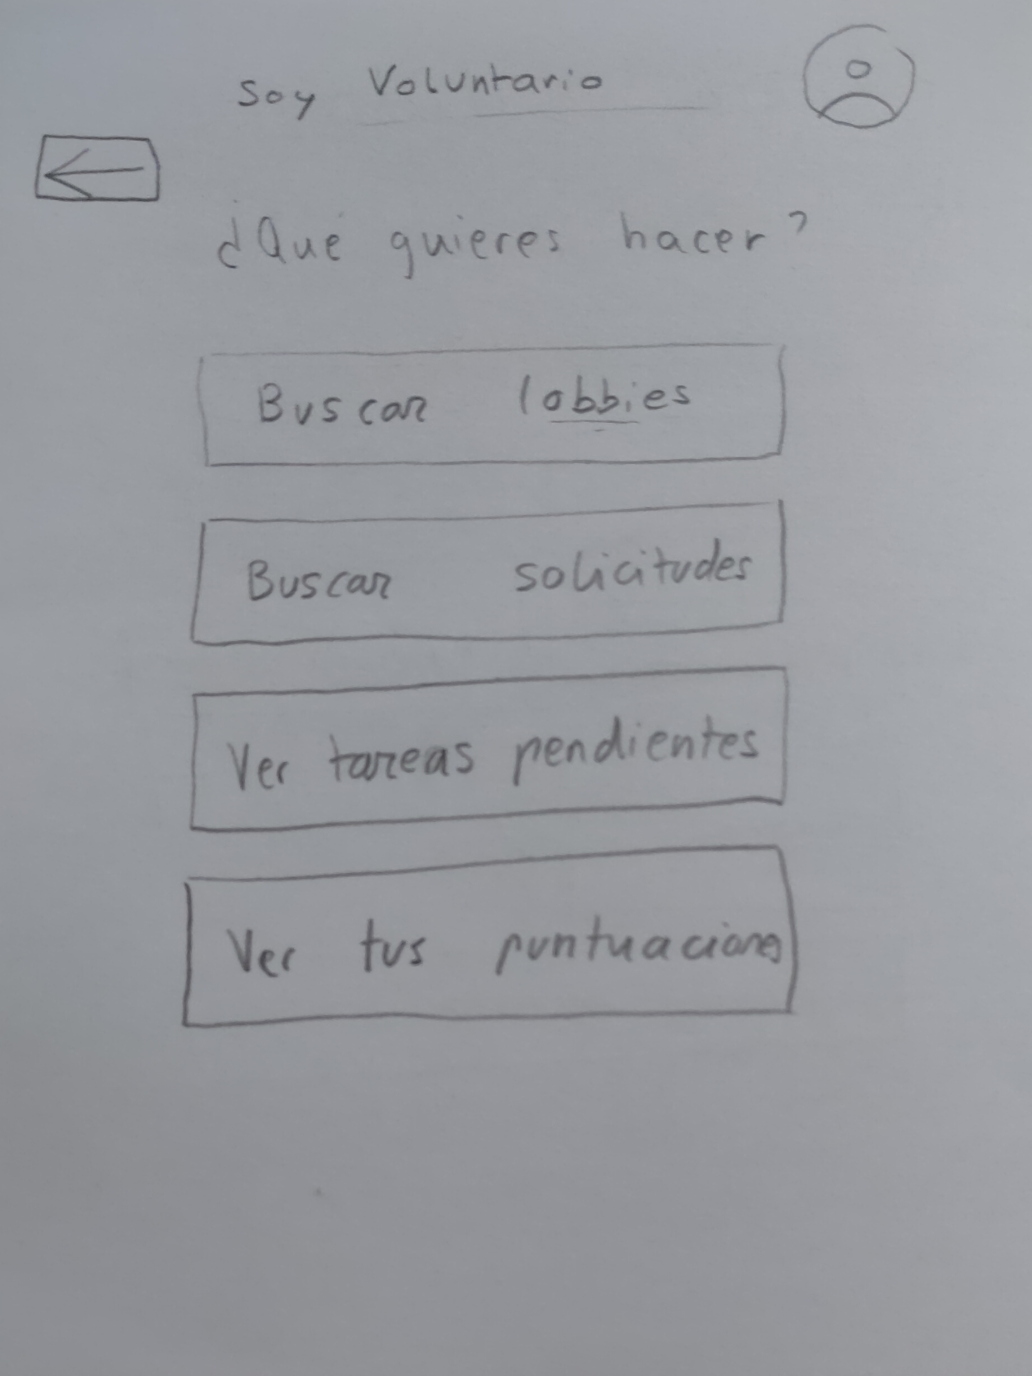 Soy Voluntario
¿Qué quieres hacer?
Buscar lobbies
Buscar solicitudes
Ver tareas pendientes
Ver tus puntuaciones